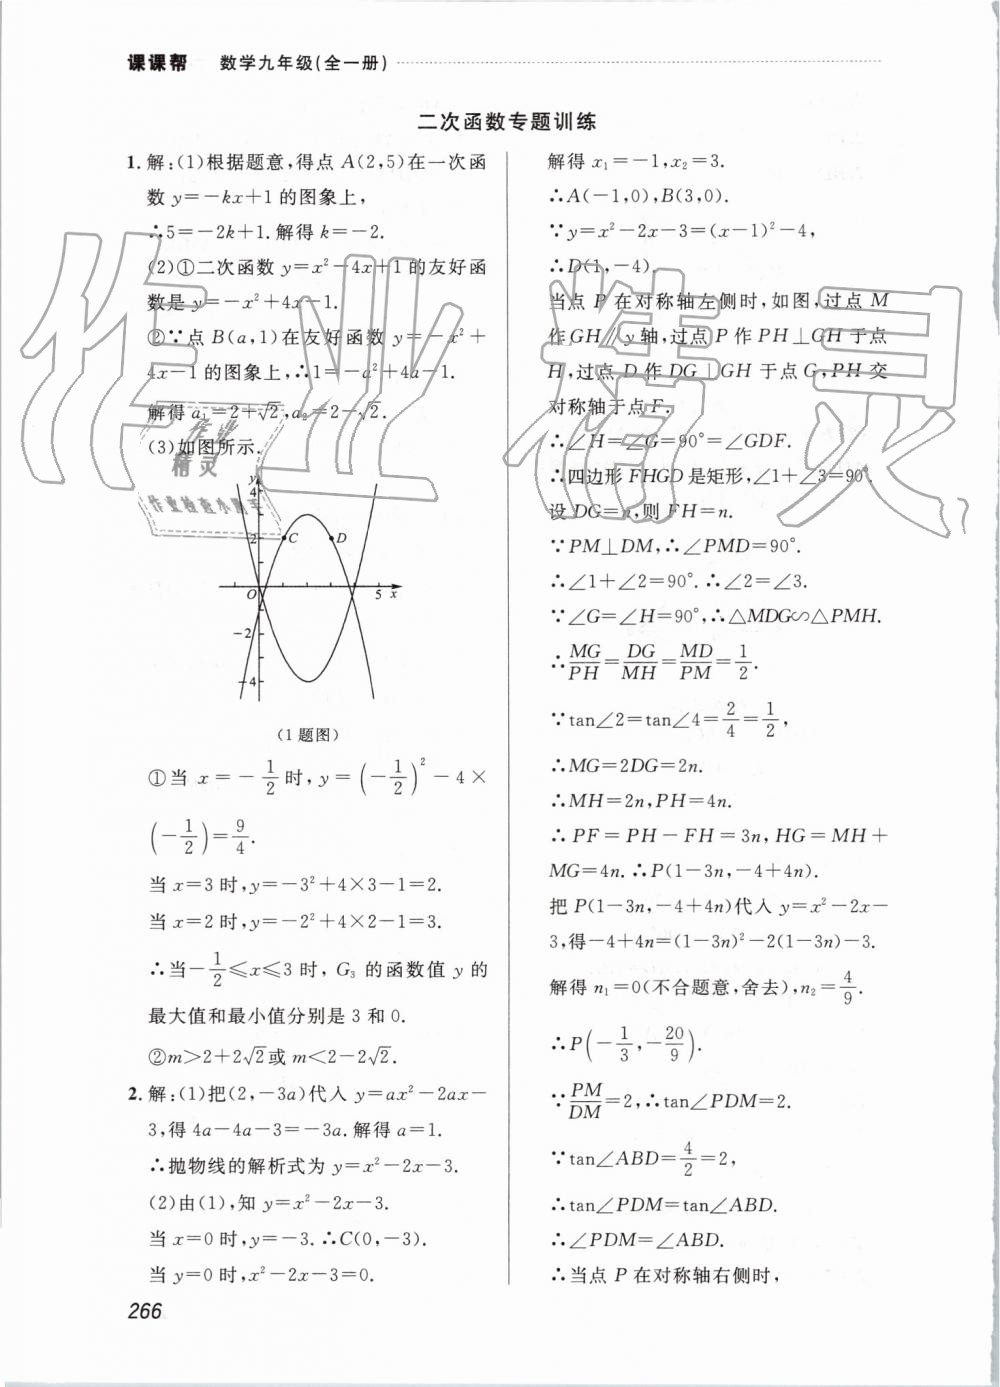 课课帮 数学九年级(全一册)
二次函数专题训练
1. 解:(1)根据题意,得点 A(2,5)在一次函
数 y=-kx+1 的图象上,
∴5=-2k+1.解得 k=-2.
(2)①二次函数 y=x²-4x+1 的友好函
数是 y=-x²+4x-1.
②∵点 B(a,1)在友好函数 y=-x²+
4x-1 的图象上,∴1=-a²+4a-1.
解得 a₁=2+√2,a₂=2-√2.
(3)如图所示.
y
4
2
C
D
O
5
x
-2
-4
(1 题图)
①当 x=-1/2 时,y=(-1/2)²-4×
(-1/2)=9/4.
当 x=3 时,y=-3²+4×3-1=2.
当 x=2 时,y=-2²+4×2-1=3.
∴当-1/2≤x≤3 时, G₃ 的函数值 y 的
最大值和最小值分别是 3 和 0.
②m>2+2√2或 m<2-2√2.
2. 解:(1)把(2,-3a)代入 y=ax²-2ax-
3,得 4a-4a-3=-3a.解得 a=1.
∴抛物线的解析式为 y=x²-2x-3.
(2)由(1),知 y=x²-2x-3.
当 x=0 时,y=-3.∴C(0,-3).
当 y=0 时,x²-2x-3=0.
解得 x₁=-1,x₂=3.
∴A(-1,0),B(3,0).
∵y=x²-2x-3=(x-1)²-4,
∴D(1,-4).
当点 P 在对称轴左侧时,如图,过点 M
作 GH∥y 轴,过点 P 作 PH⊥GH 于点
H,过点 D 作 DG⊥GH 于点 G,PH 交
对称轴于点 F.
∴∠H=∠G=90°=∠GDF.
∴四边形 FHGD 是矩形,∠1+∠3=90°.
设 DG=n,则 FH=n.
∵PM⊥DM,∴∠PMD=90°.
∴∠1+∠2=90°.∴∠2=∠3.
∵∠G=∠H=90°,∴△MDG∽△PMH.
∴MG/PH=DG/MH=MD/PM=1/2.
∵tan∠2=tan∠4=2/4=1/2,
∴MG=2DG=2n.
∴MH=2n,PH=4n.
∴PF=PH-FH=3n,HG=MH+
MG=4n.∴P(1-3n,-4+4n).
把 P(1-3n,-4+4n)代入 y=x²-2x-
3,得-4+4n=(1-3n)²-2(1-3n)-3.
解得 n₁=0(不合题意,舍去),n₂=4/9.
∴P(-1/3,-20/9).
∵PM/DM=2,∴tan∠PDM=2.
∵tan∠ABD=4/2=2,
∴tan∠PDM=tan∠ABD.
∴∠PDM=∠ABD.
∴当点 P 在对称轴右侧时,
266
作业精灵
作业
精灵
作业检查小帮手